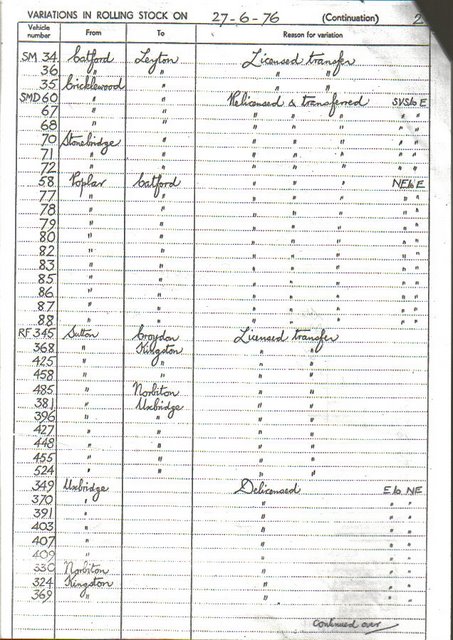 VARIATIONS IN ROLLING STOCK ON 27-6-76 (Continuation) 2
Vehicle number From To Reason for variation
SM 34 Catford Leyton Licensed transfer
36 " " " "
35 Cricklewood " " "
SMD 60 " " Relicensed & transferred SVS to E
67 " " " " " " "
68 " " " " " " "
70 Stonebridge " " " " " "
71 " " " " " " "
72 " " " " " " "
58 Poplar Catford " " " NE to E
77 " " " " " " "
78 " " " " " " "
79 " " " " " " "
80 " " " " " " "
82 " " " " " " "
83 " " " " " " "
85 " " " " " " "
86 " " " " " " "
87 " " " " " " "
88 " " " " " " "
RF 345 Sutton Croydon Licensed transfer
368 " Kingston " "
425 " " " "
458 " " " "
485 " Norbiton " "
381 " Uxbridge " "
396 " " " "
427 " " " "
448 " " " "
455 " " " "
524 " " " "
349 Uxbridge Delicensed E to NE
370 " " " "
391 " " " "
403 " " " "
407 " " " "
409 " " " "
330 Norbiton " " "
324 Kingston " " "
369 " " " "
continued over